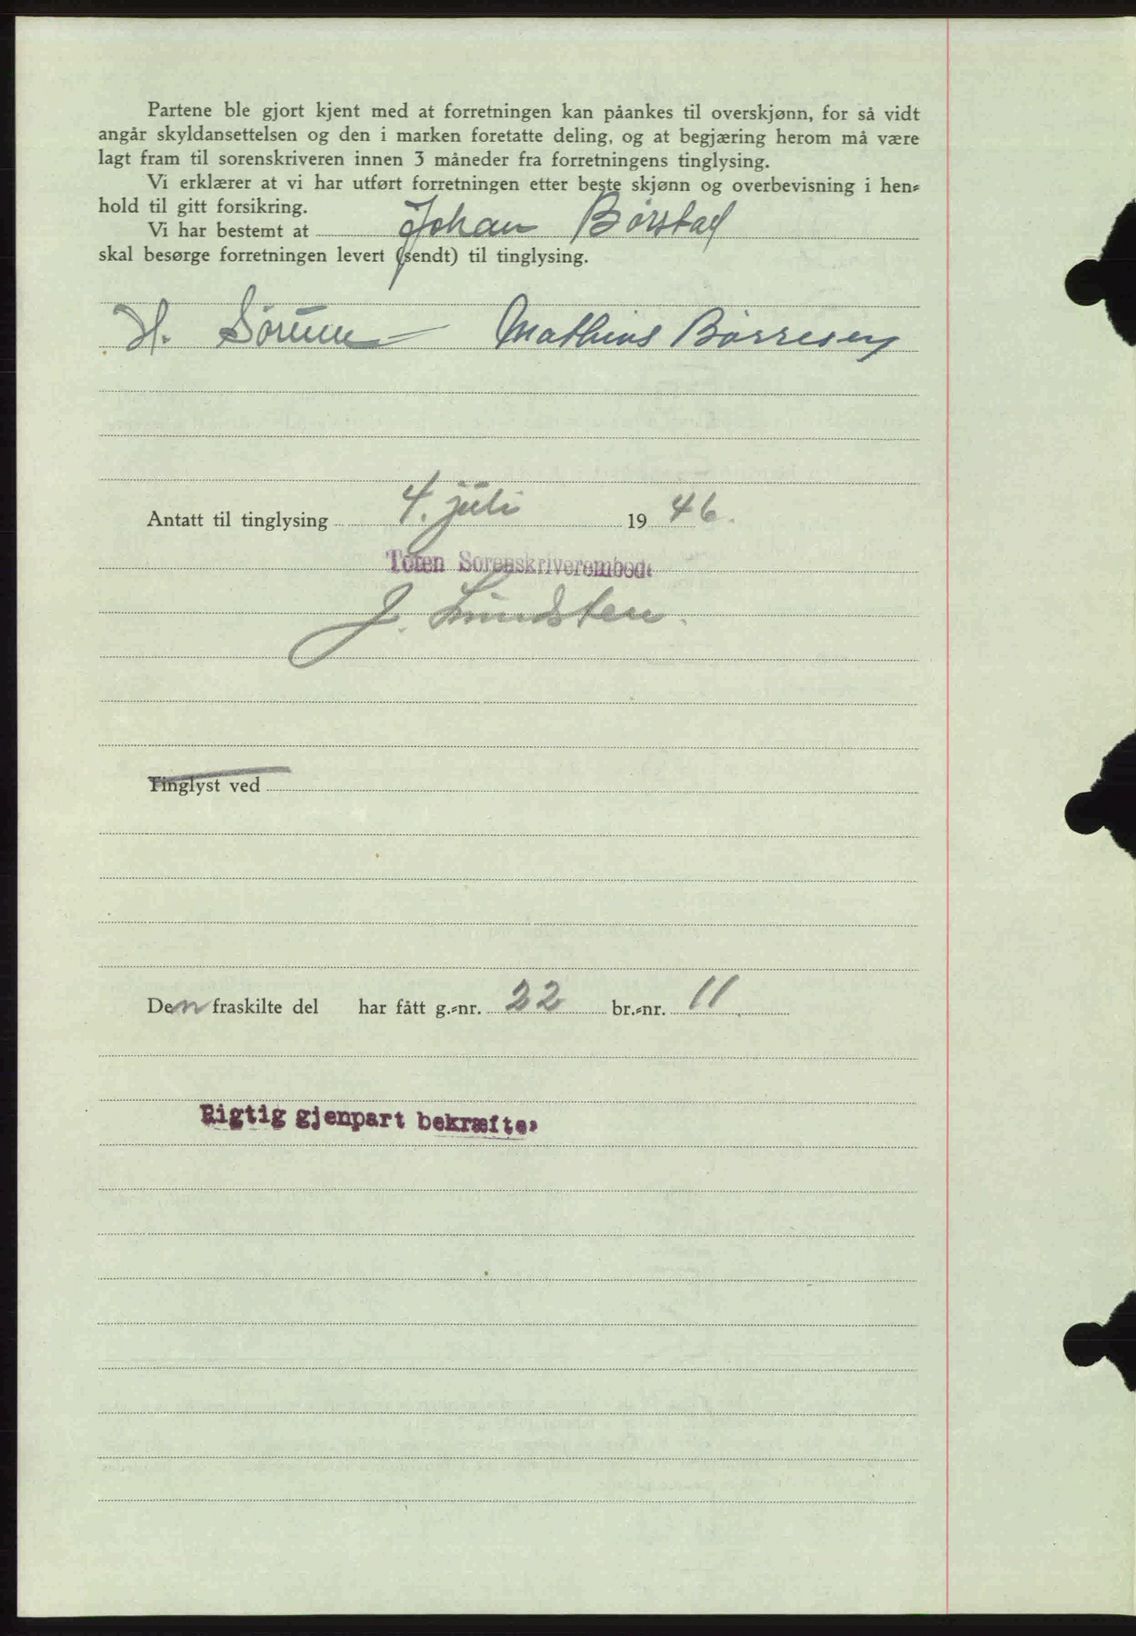 Partene ble gjort kjent med at forretningen kan påankes til overskjønn, for så vidt
angår skyldansettelsen og den i marken foretatte deling, og at begjæring herom må være
lagt fram til sorenskriveren innen 3 måneder fra forretningens tinglysing.
Vi erklærer at vi har utført forretningen etter beste skjønn og overbevisning i hen-
hold til gitt forsikring.
Vi har bestemt at Johan Børstad
skal besørge forretningen levert (sendt) til tinglysing.
H. Sørum Mathius Børresen
Antatt til tinglysing 4. juli 1946.
Toten Sorenskriverembede
J. Lundsten.
Tinglyst ved
Den fraskilte del har fått g.-nr. 22 br.-nr. 11
Rigtig gjenpart bekræftes